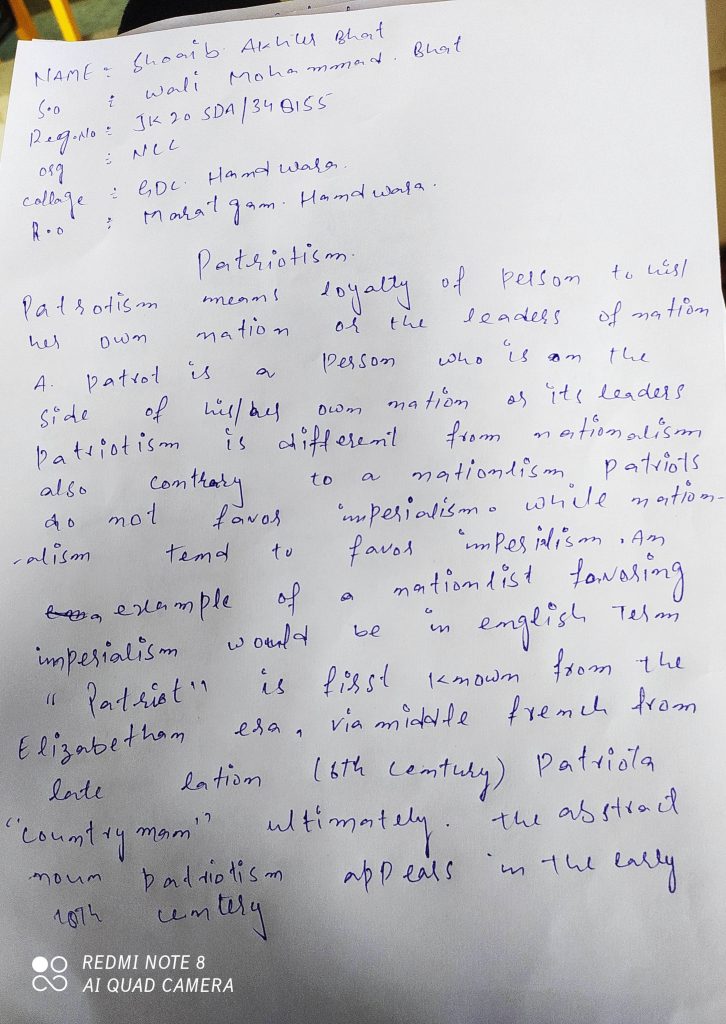 NAME : Shoaib Akhter Bhat
S.o : Wali Mohammad. Bhat
Reg.No : JK 20 SDA/340155
org : NCC
collage : GDC. Handwara.
R.o : Maratgam. Handwara.
Patriotism.
Patrotism means loyalty of person to his/
her own nation or the leaders of nation
A. patrot is a person who is on the
side of his/her own nation or its leaders
patriotism is different from nationalism
also contrary to a nationlism patriots
do not favor imperialism. while nation-
-alism tend to favor imperilism. An
example of a nationlist favoring
imperialism would be in english Term
"Patriot" is first known from the
Elizabethan era, via middle french from
late lation (6th century) Patriota
"countryman" ultimately. the abstract
noun patriotism appears in the early
18th centery
REDMI NOTE 8
AI QUAD CAMERA